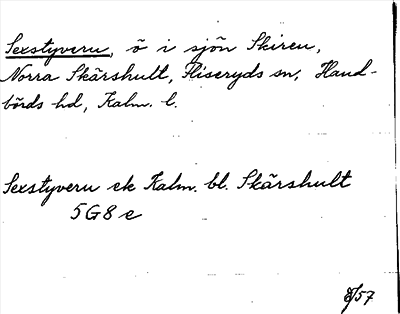 Sexstyveru, ö i sjön Skiren,
Norra Skärshult, Fliseryds sn, Hand-
börds hd, Kalm. l.
Sexstyveru ek Kalm. bl. Skärshult
5G8e
/57